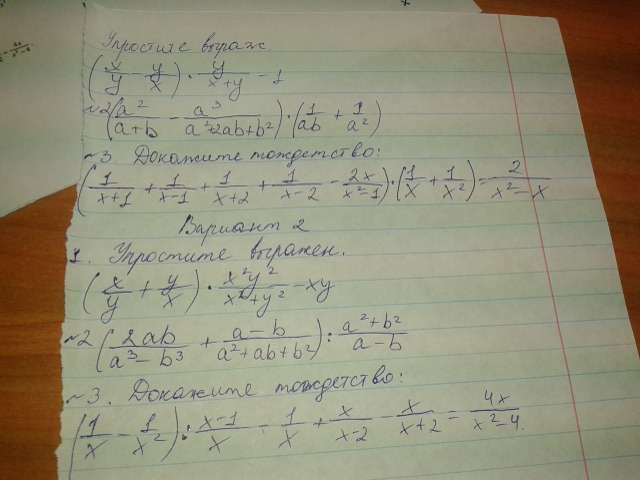 Упростите выраж
(x/y - y/x) · y/(x+y) - 1
№2 (a²/(a+b) - a³/(a²+2ab+b²)) · (1/(ab) + 1/a²)
№3 Докажите тождетство:
(1/(x+1) + 1/(x-1) + 1/(x+2) + 1/(x-2) - 2x/(x²-1)) · (1/x + 1/x²) = 2/(x²-x)
Вариант 2
1. Упростите выражен.
(x/y + y/x) · x²y²/(x²+y²) - xy
№2 (2ab/(a³-b³) + (a-b)/(a²+ab+b²)) : (a²+b²)/(a-b)
№3. Докажите тождетство:
(1/x - 1/x²) : (x-1)/x - 1/x + x/(x-2) - x/(x+2) = 4x/(x²-4).